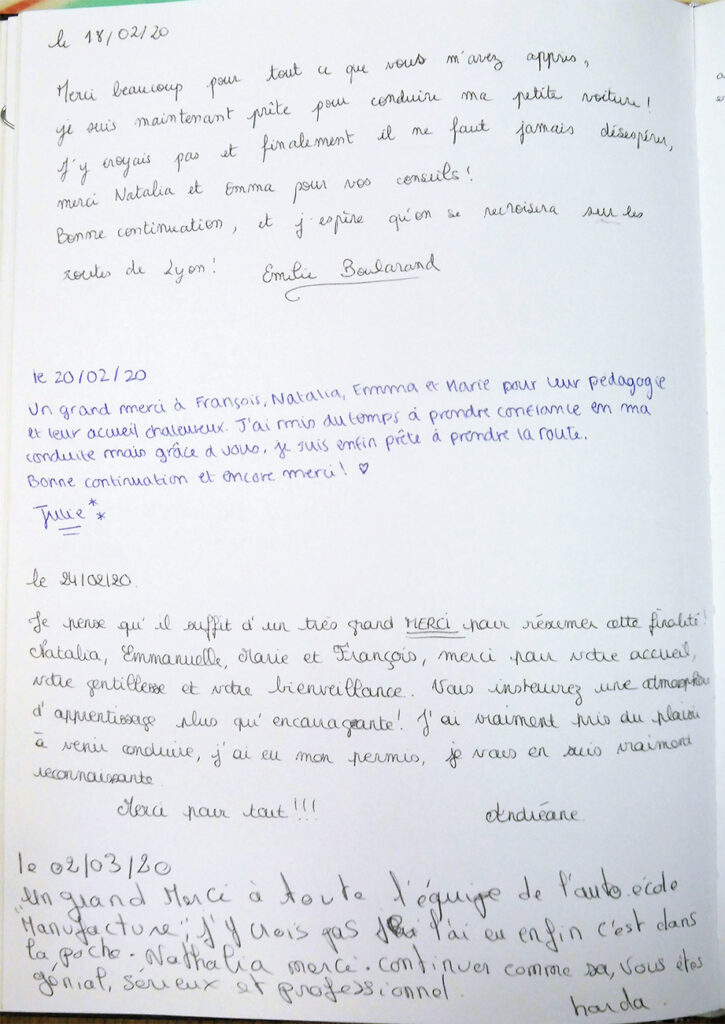 le 18/02/20
Merci beaucoup pour tout ce que vous m'avez appris,
je suis maintenant prête pour conduire ma petite voiture!
J'y croyais pas et finalement il ne faut jamais désespérer,
merci Natalia et Emma pour vos conseils!
Bonne continuation, et j'espère qu'on se recroisera sur les
routes de Lyon!
Emilie Boularand
le 20/02/20
Un grand merci à François, Natalia, Emmma et Marie pour leur pédagogie
et leur accueil chaleureux. J'ai mis du temps à prendre confiance en ma
conduite mais grâce à vous, je suis enfin prête à prendre la route.
Bonne continuation et encore merci! ♡
Julie **
le 24/02/20.
Je pense qu'il suffit d'un très grand MERCI pour résumer cette finalité!
Natalia, Emmanuelle, Marie et François, merci pour votre accueil,
votre gentillesse et votre bienveillance. Vous instaurez une atmosphère
d'apprentissage plus qu'encourageante! J'ai vraiment pris du plaisir
à venir conduire, j'ai eu mon permis, je vous en suis vraiment
reconnaissante
Merci pour tout!!!
Andréane.
le 02/03/20
Un grand Merci à toute l'équipe de l'auto.école
"Manufacture", J'y crois pas je l'ai eu enfin c'est dans
la poche. Nathalia merci. continuer comme sa, vous êtes
génial, sérieux et professionnel.